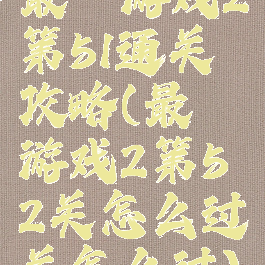 最 游戏2
第51通关
攻略(最
游戏2第5
2关怎么过
关怎么过)